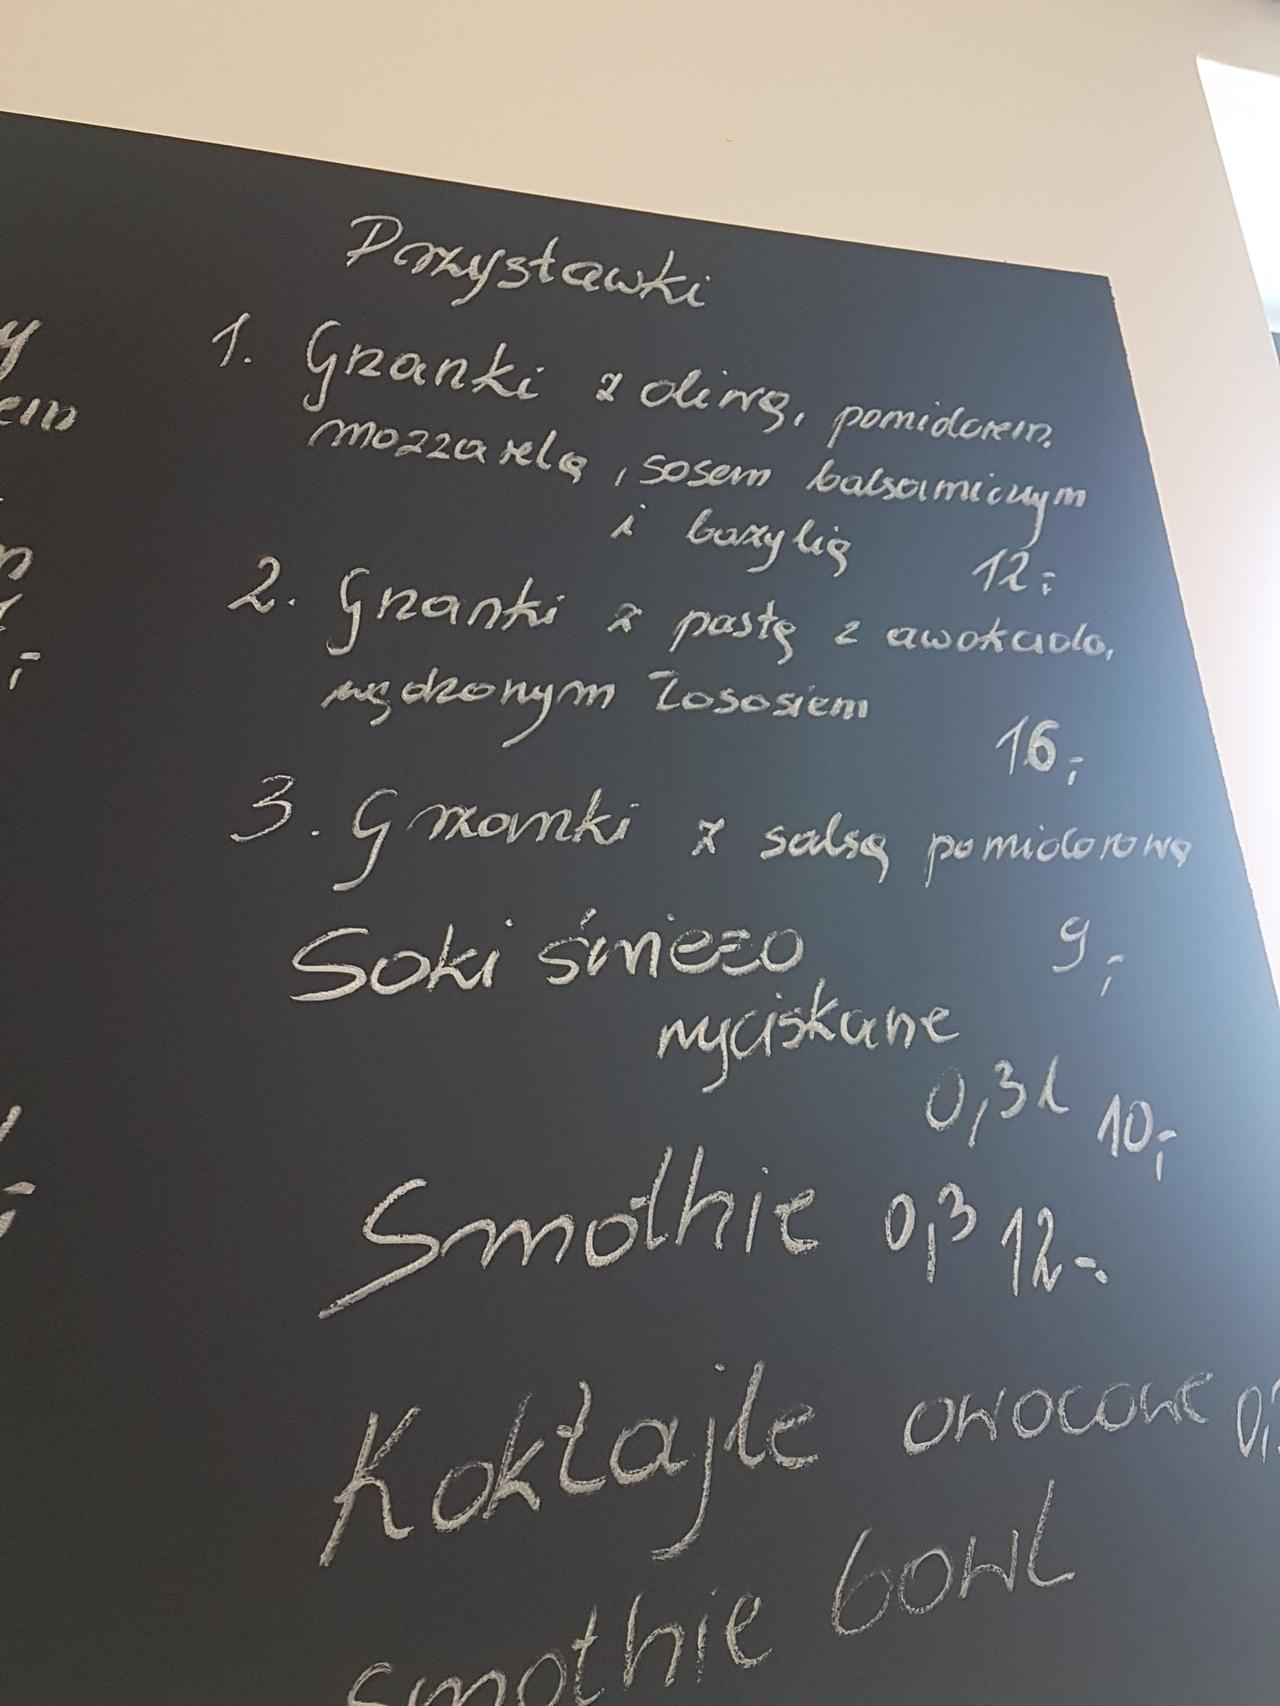 Przystawki
1. Grzanki z oliwą, pomidorem,
mozzarelą, sosem balsamicznym
i bazylią 12,-
2. Grzanki z pastą z awokado,
wędzonym łososiem
16,-
3. Grzanki z salsą pomidorową
9,-
Soki śwież​o
wyciskane
0,3l 10,-
Smothie 0,3 12-.
Koktajle owocowe 0,
smothie bowl